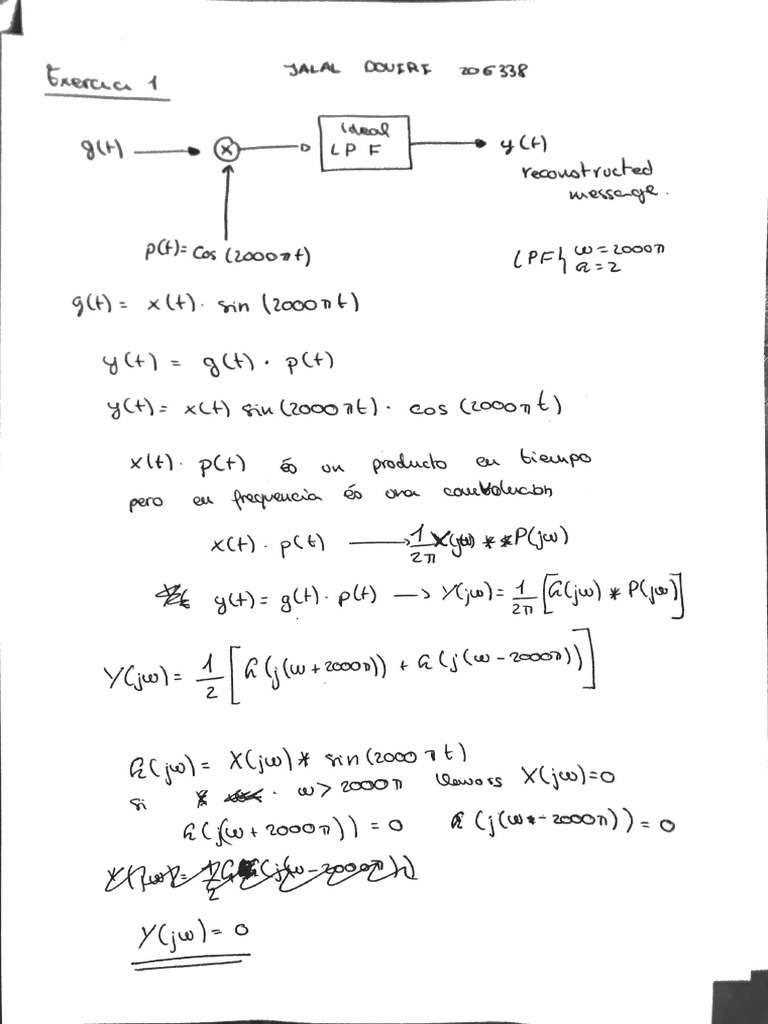 JALAL DOUIRI 206338
Exercici 1
g(t) → ⊗ → Ideal LPF → y(t)
reconstructed
message.
p(t)= cos(2000πt)
LPF} ω=2000π
a=2
g(t) = x(t) · sin(2000πt)
y(t) = g(t) · p(t)
y(t) = x(t) sin(2000πt) · cos(2000πt)
x(t) · p(t) és un producto en tiempo
pero en frequencia és una
x(t) · p(t) → 1/2π X(jω) * *P(jω)
y(t) = g(t) · p(t) → Y(jω) = 1/2π [G(jω) * P(jω)]
Y(jω) = 1/2 [G(j(ω+2000π)) + G(j(ω-2000π))]
G(jω) = X(jω) * sin(2000πt)
si ω > 2000π X(jω)=0
G(j(ω+2000π)) = 0 G(j(ω-2000π)) = 0
Y(jω) = 0